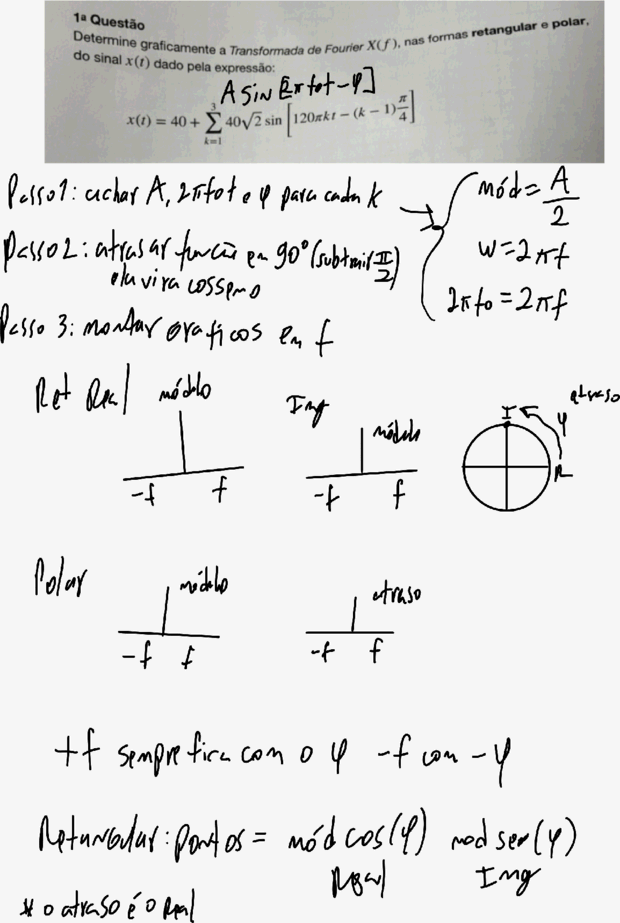 1ª Questão
Determine graficamente a Transformada de Fourier X(f), nas formas retangular e polar,
do sinal x(t) dado pela expressão:
A sin [2πfot-φ]
x(t) = 40 + ∑ₖ₌₁³ 40√2 sin [120πkt − (k − 1)π/4]
Passo 1: achar A, 2πfot e φ para cada k
mód = A/2
w = 2πf
2πfo = 2πf
Passo 2: atrasar função em 90° (subtrair π/2)
ela vira cosseno
Passo 3: montar graficos em f
Ret Real módulo
-f f
Img módulo
-f f
atraso
I φ
R
Polar módulo
-f f
atraso
-f f
+f sempre fica com o φ -f com -φ
Retangular: pontos = mód cos(φ) mod sen(φ)
Real Img
* o atraso é o Real